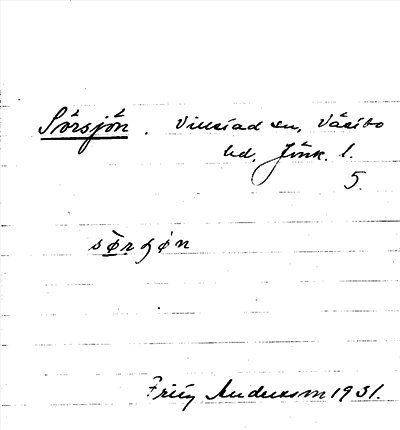 Sörsjön. Villstad sn, Västbo
hd. Jönk. l.
5.
sörʒøn
Fritz Andersson 1931.